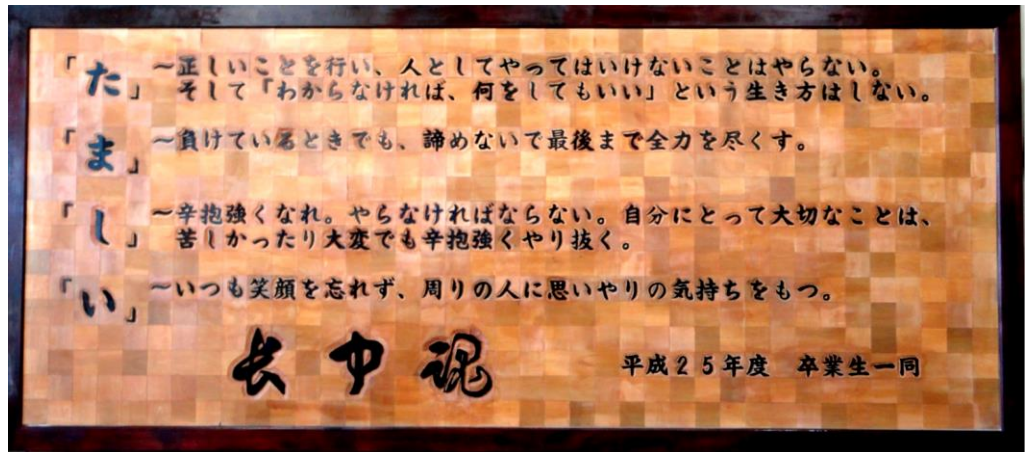 「た」～正しいことを行い、人としてやってはいけないことはやらない。
そして「わからなければ、何をしてもいい」という生き方はしない。
「ま」～負けているときでも、諦めないで最後まで全力を尽くす。
「し」～辛抱強くなれ。やらなければならない。自分にとって大切なことは、
苦しかったり大変でも辛抱強くやり抜く。
「い」～いつも笑顔を忘れず、周りの人に思いやりの気持ちをもつ。
長中魂
平成25年度 卒業生一同